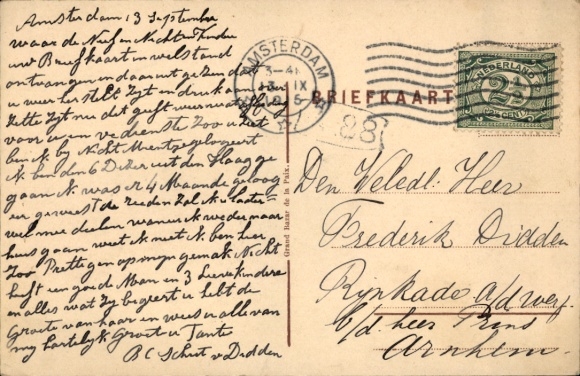 Amsterdam 13 September
waarde Neef en Nicht en Kinder
uw Briefkaart in welstand
ontvangen en daar uit gezien dat
u weer herstelt zyt en druk aan
Zette Zyt nu dat geeft weer
voor u en verdienste Zoo u ziet
ben ik by Nicht gelogeert
ik ben den 6 uit den Haag ge
gaan ik was er 4 Maande gelog
eer geweest de reeden Zal ik u laater
wel mee deelen wanneer ik weder naar
huis gaan weet ik niet ik ben hier
Zoo Prettig en op myn gemak Nicht
heeft een goede Man en 3 Lieve kindere
en alles wat Zy begeert u hebt de
Groete van haar en wees u alle van
my hartelyk Groet u Tante
B C Schut v Didden
AMSTERDAM
3-4
13 IX
BRIEFKAART
NEDERLAND
2½
CENT
88
Grand Bazar de la Paix.
Den Weledl: Heer
Frederik Didden
Rijnkade a/d werf
b/d. heer Prins
Arnhem.